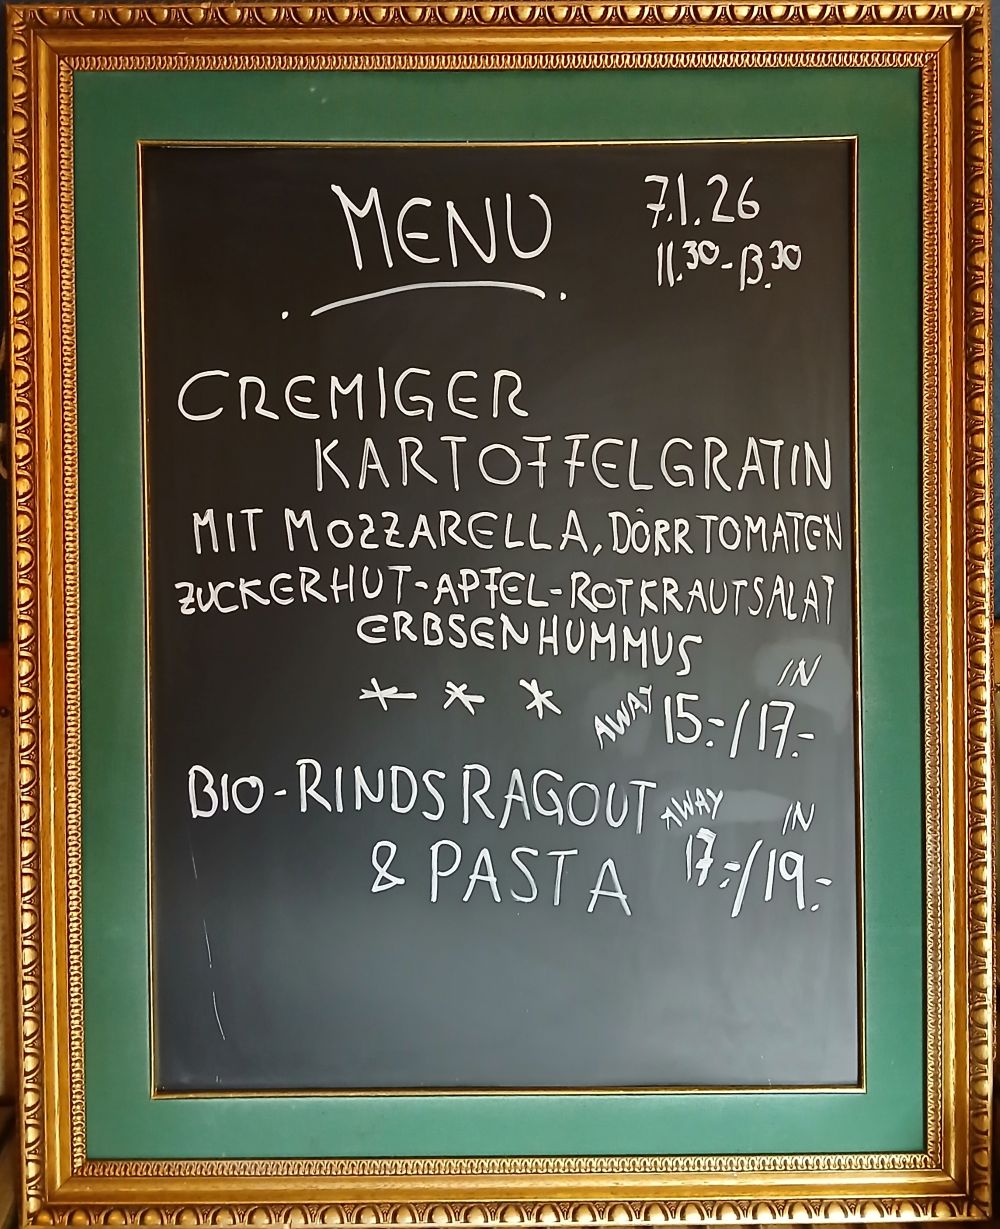 MENU
7.1.26
11.30-13.30
CREMIGER
KARTOFFELGRATIN
MIT MOZZARELLA, DÖRRTOMATEN
ZUCKERHUT-APFEL-ROTKRAUTSALAT
ERBSENHUMMUS
* * *
AWAY 15.-/17.- IN
BIO-RINDSRAGOUT
& PASTA
AWAY 17.-/19.- IN